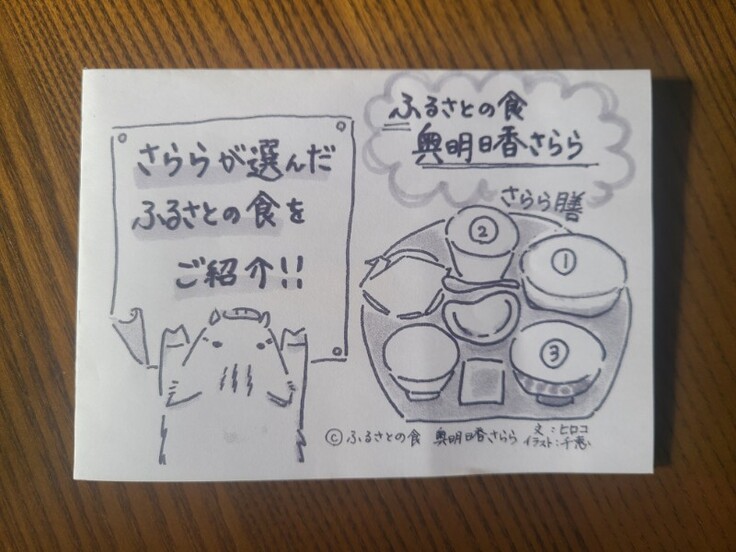 さららが選んだ
ふるさとの食を
ご紹介!!
ふるさとの食
奥明日香さらら
さらら膳
②
①
③
©ふるさとの食 奥明日香さらら
文:ヒロコ
イラスト:千恵